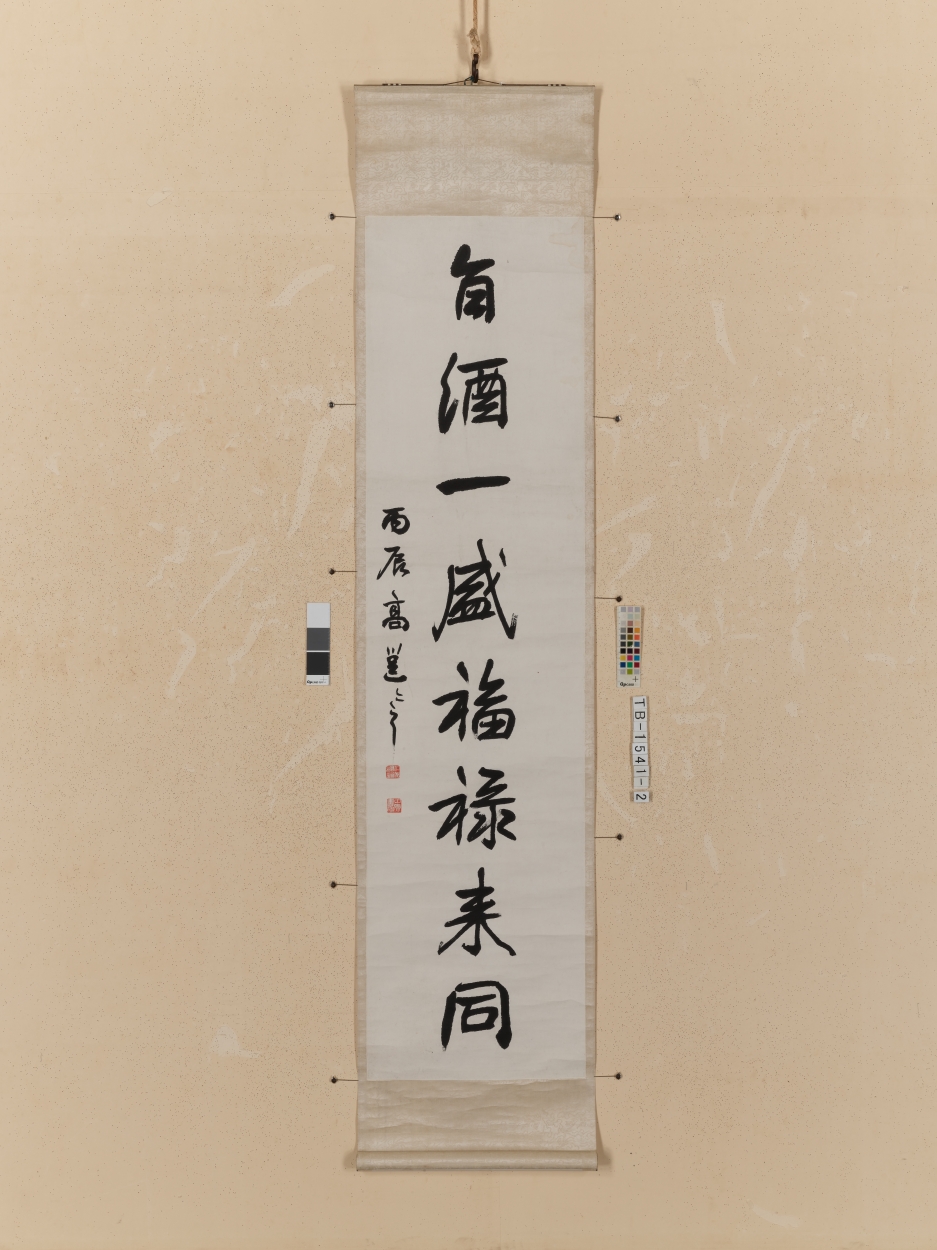 旨酒一盛福禄来同
丙辰高邕
TB-1541-2